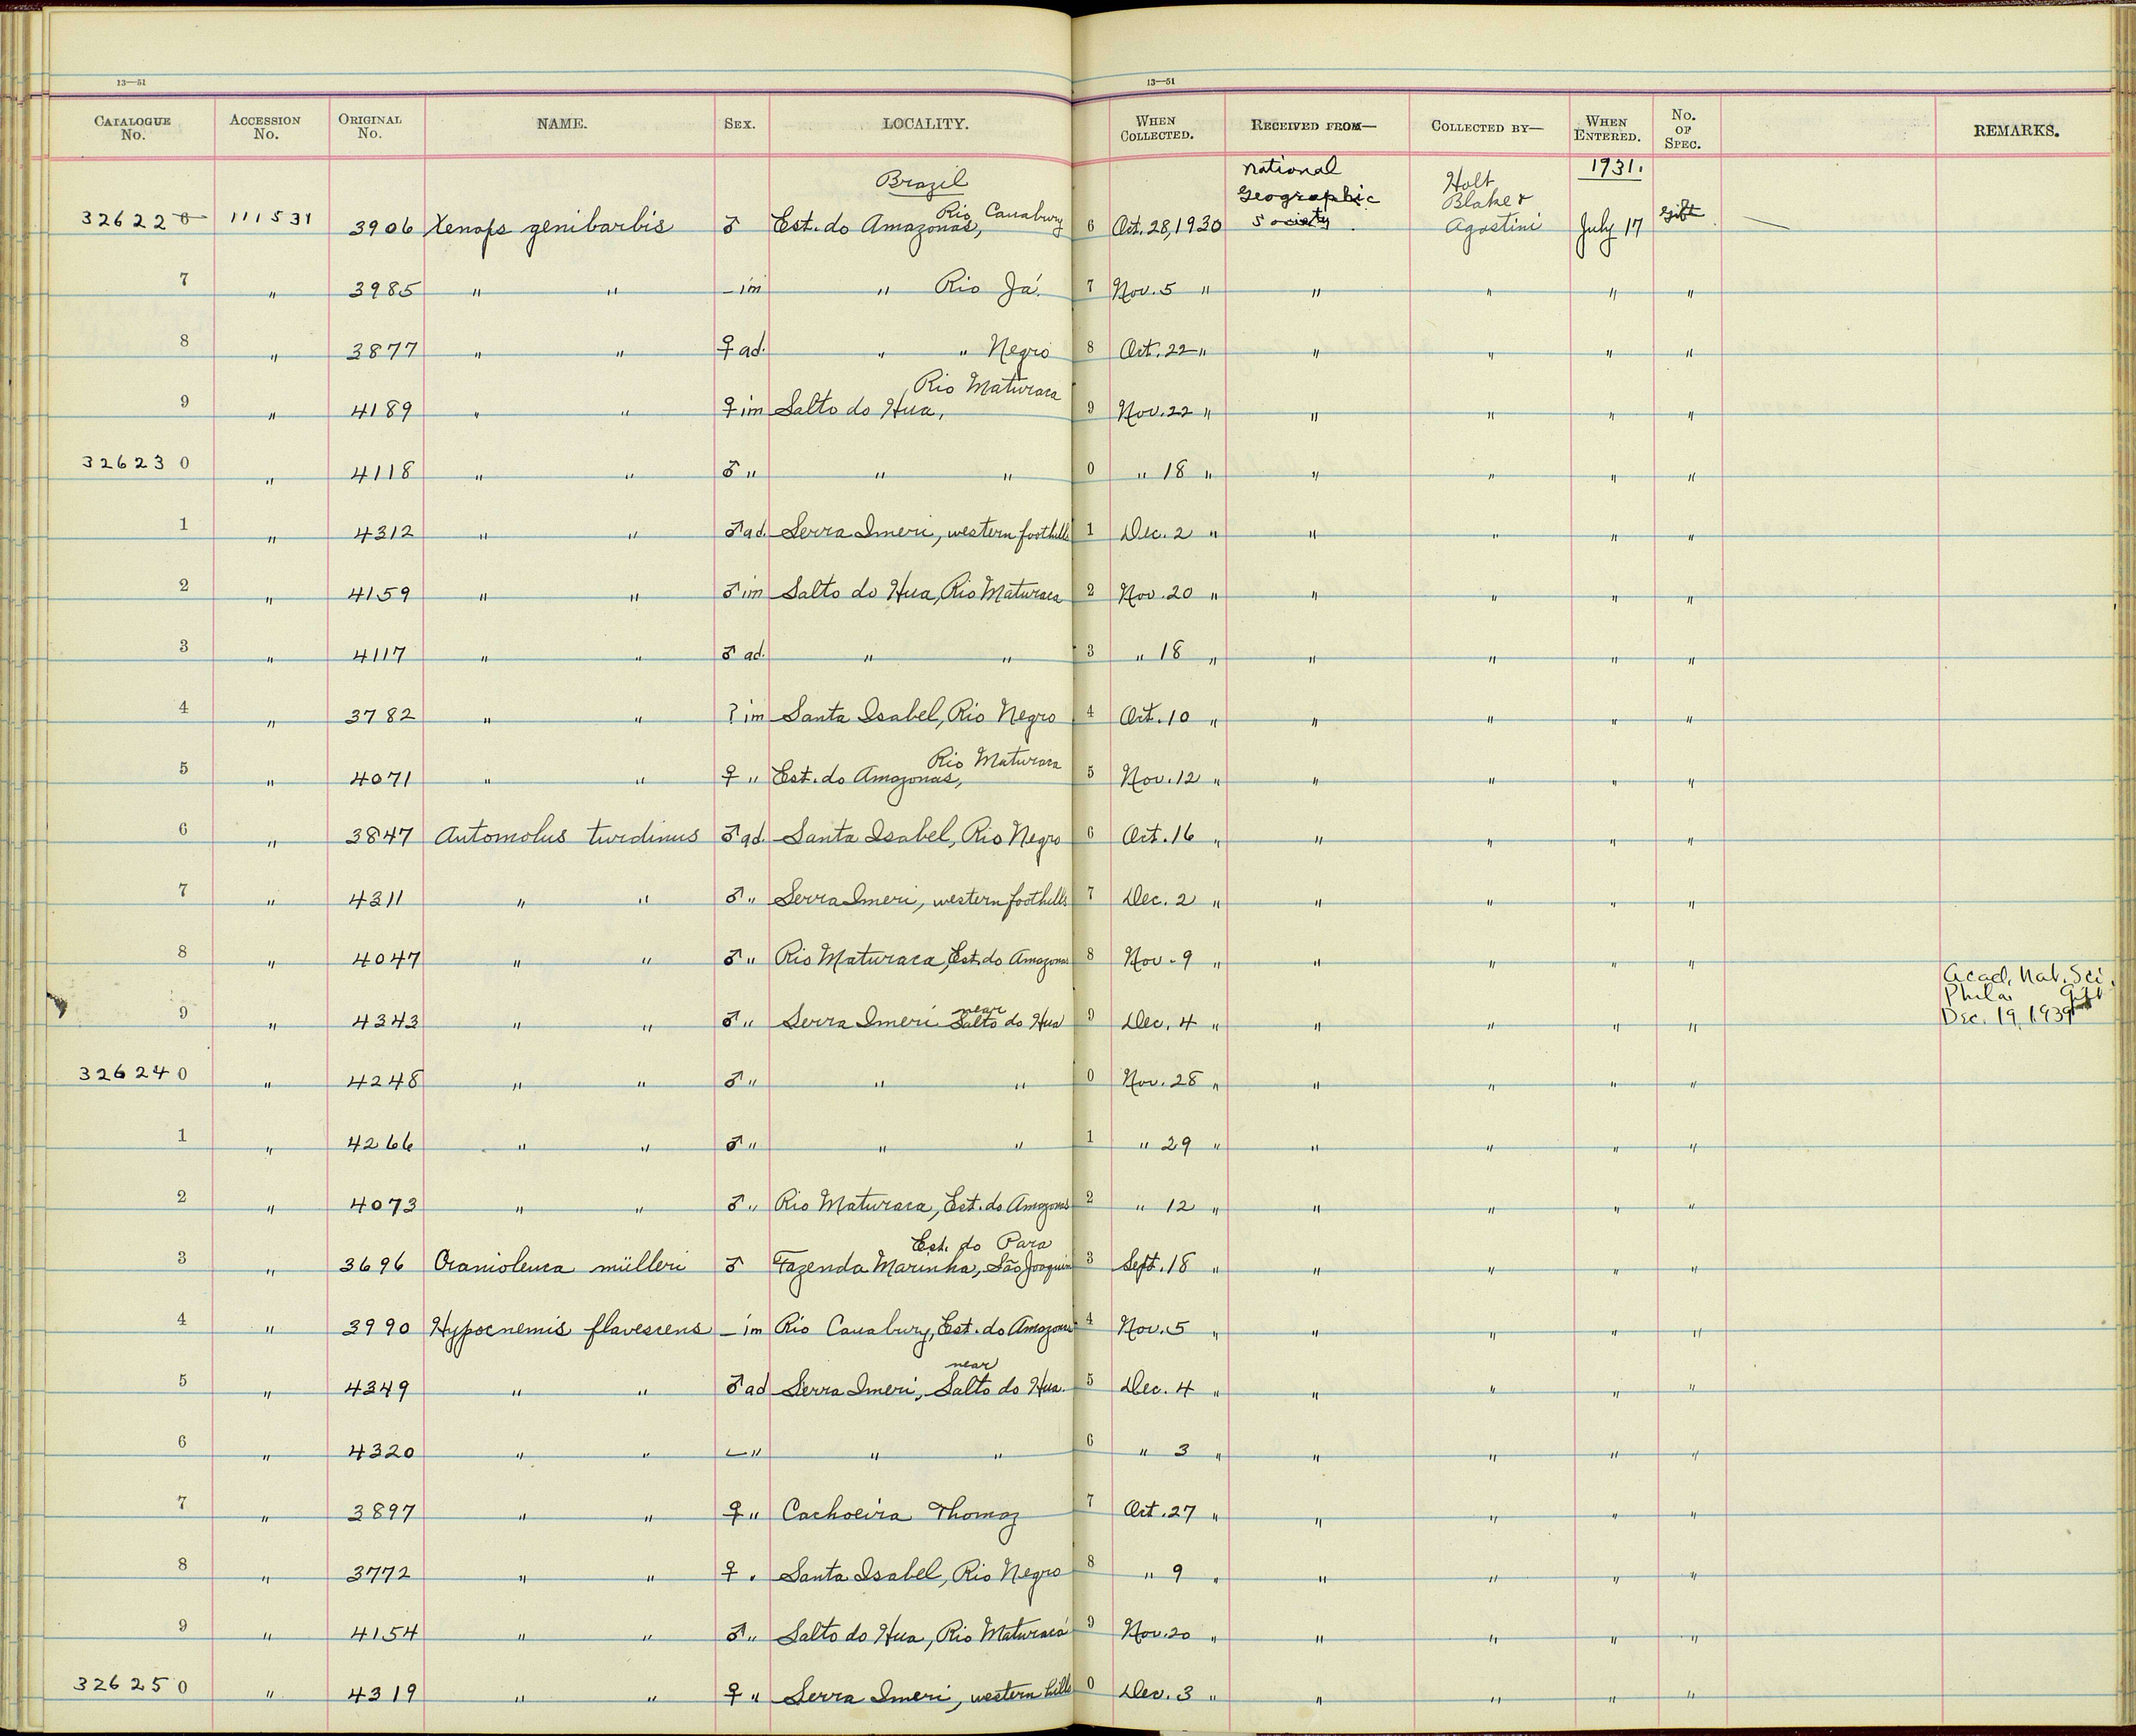 13—51 13—51
CATALOGUE No. ACCESSION No. ORIGINAL No. NAME. SEX. LOCALITY. WHEN COLLECTED. RECEIVED FROM— COLLECTED BY— WHEN ENTERED. No. OF SPEC. REMARKS.
Brazil National Geographic Society Holt Blake & Agostini 1931.
326226 111531 3906 Xenops genibarbis ♂ Est. do Amazonas, Rio Cauabury 6 Oct. 28, 1930 July 17 Gift —
7 " 3985 " " – im " Rio Já. 7 Nov. 5 " " " " "
8 " 3877 " " ♀ ad. " " Negro 8 Oct. 22 " " " " "
9 " 4189 " " ♀ im Salto do Hua, Rio Maturaca 9 Nov. 22 " " " " "
326230 " 4118 " " ♂ " " " 0 " 18 " " " " "
1 " 4312 " " ♂ ad. Serra Imeri, western foothills 1 Dec. 2 " " " " "
2 " 4159 " " ♂ im Salto do Hua, Rio Maturaca 2 Nov. 20 " " " " "
3 " 4117 " " ♂ ad. " " 3 " 18 " " " " "
4 " 3782 " " ? im Santa Isabel, Rio Negro 4 Oct. 10 " " " " "
5 " 4071 " " ♀ " Est. do Amazonas, Rio Maturaca 5 Nov. 12 " " " " "
6 " 3847 Automolus turdinus ♂ ad. Santa Isabel, Rio Negro 6 Oct. 16 " " " " "
7 " 4311 " " ♂ " Serra Imeri, western foothills 7 Dec. 2 " " " " "
8 " 4047 " " ♂ " Rio Maturaca, Est. do Amazonas 8 Nov. 9 " " " " "
9 " 4343 " " ♂ " Serra Imeri near Salto do Hua 9 Dec. 4 " " " " " Acad. Nat. Sci. Phila. Gift Dec. 19, 1939
326240 " 4248 " " ♂ " " " 0 Nov. 28 " " " " "
1 " 4266 " " ♂ " " " 1 " 29 " " " " "
2 " 4073 " " ♂ " Rio Maturaca, Est. do Amazonas 2 " 12 " " " " "
3 " 3696 Cranioleuca mülleri ♂ Fazenda Marinha, São Joaquim Est. do Para 3 Sept. 18 " " " " "
4 " 3990 Hypocnemis flavescens – im Rio Cauabury, Est. do Amazonas 4 Nov. 5 " " " " "
5 " 4349 " " ♂ ad Serra Imeri, near Salto do Hua. 5 Dec. 4 " " " " "
6 " 4320 " " – " " " 6 " 3 " " " " "
7 " 3897 " " ♀ " Cachoeira Thomaz 7 Oct. 27 " " " " "
8 " 3772 " " ♀ " Santa Isabel, Rio Negro 8 " 9 " " " " "
9 " 4154 " " ♂ " Salto do Hua, Rio Maturacá 9 Nov. 20 " " " " "
326250 " 4319 " " ♀ " Serra Imeri, western hills 0 Dec. 3 " " " " "